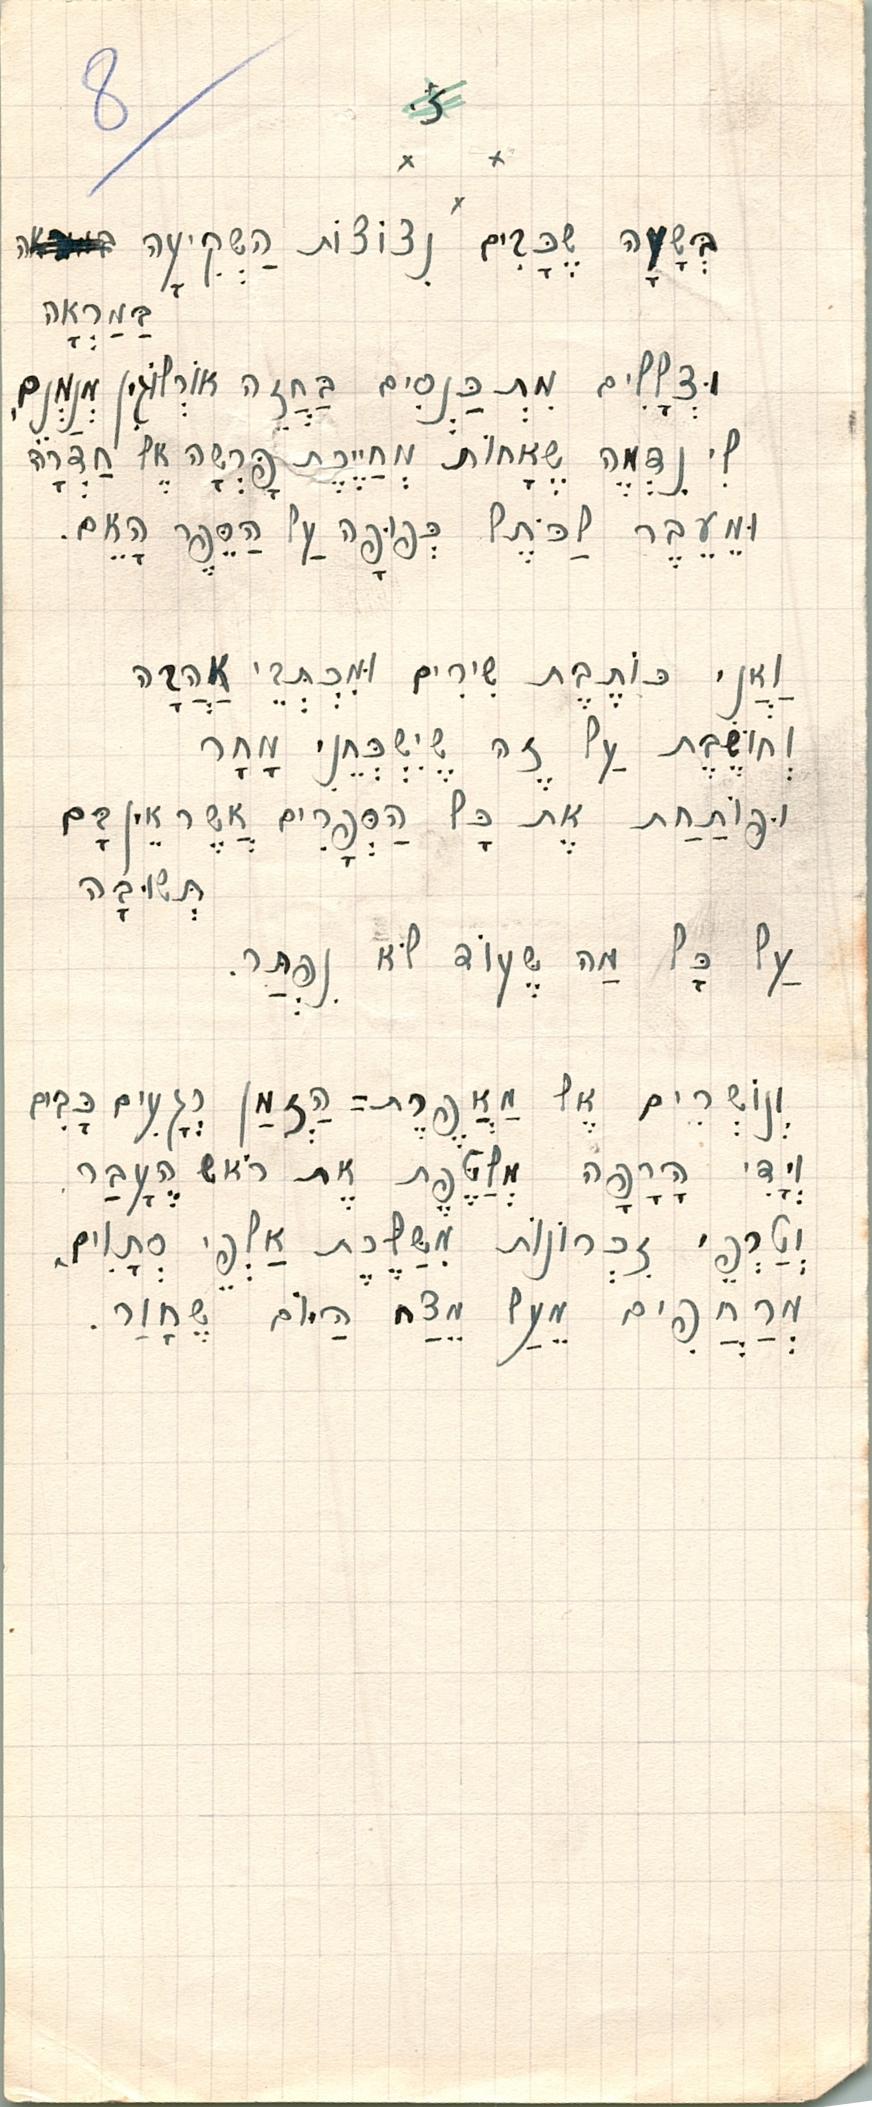 8
ז.
x x
x
בְּשָׁעָה שֶׁכָּבִים נִצוֹצוֹת הַשְּׁקִיעָה
בַּמַרְאָה
וּצְלָלִים מִתְכַּנְסִים בַּחֲזֵה אוֹרְלוֹגִין מְנַמְנֵם,
לִי נִדְמֶה שֶׁאָחוֹת מְחַיֶּיכֶת פָּרְשָׂה אֶל חַדְרָהּ
וּמֵעֵבֶר לַכֹּתֶל כְּפוּפָה עַל הַסֵּפֶר הָאֵם.
וַאֲנִי כּוֹתֶבֶת שִׁירִים וּמִכְתְּבֵי אַהֲבָה
וְחוֹשֶׁבֶת עַל זֶה שֶׁיִּשְׁכְּחֵנִי מָחָר
וּפוֹתַחַת אֶת כָּל הַסְּפָרִים אֲשֶׁר אֵין בָּם
תְּשׁוּבָה
עַל כָּל מַה שֶּׁעוֹד לֹא נִפְתַּר.
וְנוֹשְׁרִים אֶל מַאֲפֶרֶת= הַזְּמַן רְגָעִים כָּבִים
וְיָדִי הָרָפָה מְלַטֶּפֶת אֶת רֹאשׁ הֶעָבַר.
וְטַרְפֵּי זִכְרוֹנוֹת מִשַּׁלֶּכֶת אַלְפֵי סְתָוִים,
מְרַחֲפִים מֵעַל מֵצַח הַיּוֹם שֶׁחָוַר.